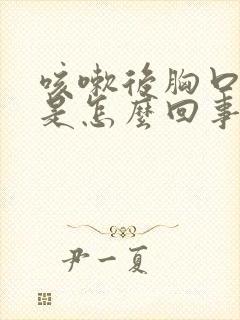 咳嗽後胸口
是怎麼回事
尹一夏